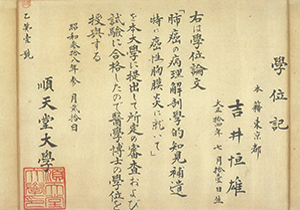 學位記
本籍東京都
吉井恒雄
大正十四年七月拾壹日生
右は學位論文
「肺癌の病理解剖學的知見補遺
特に癌性胸膜炎に就いて」
を本大學に提出して所定の審査および
試験に合格したので醫學博士の學位を
授與する
昭和参拾八年
月貳拾日
順天堂大學
乙第壹號